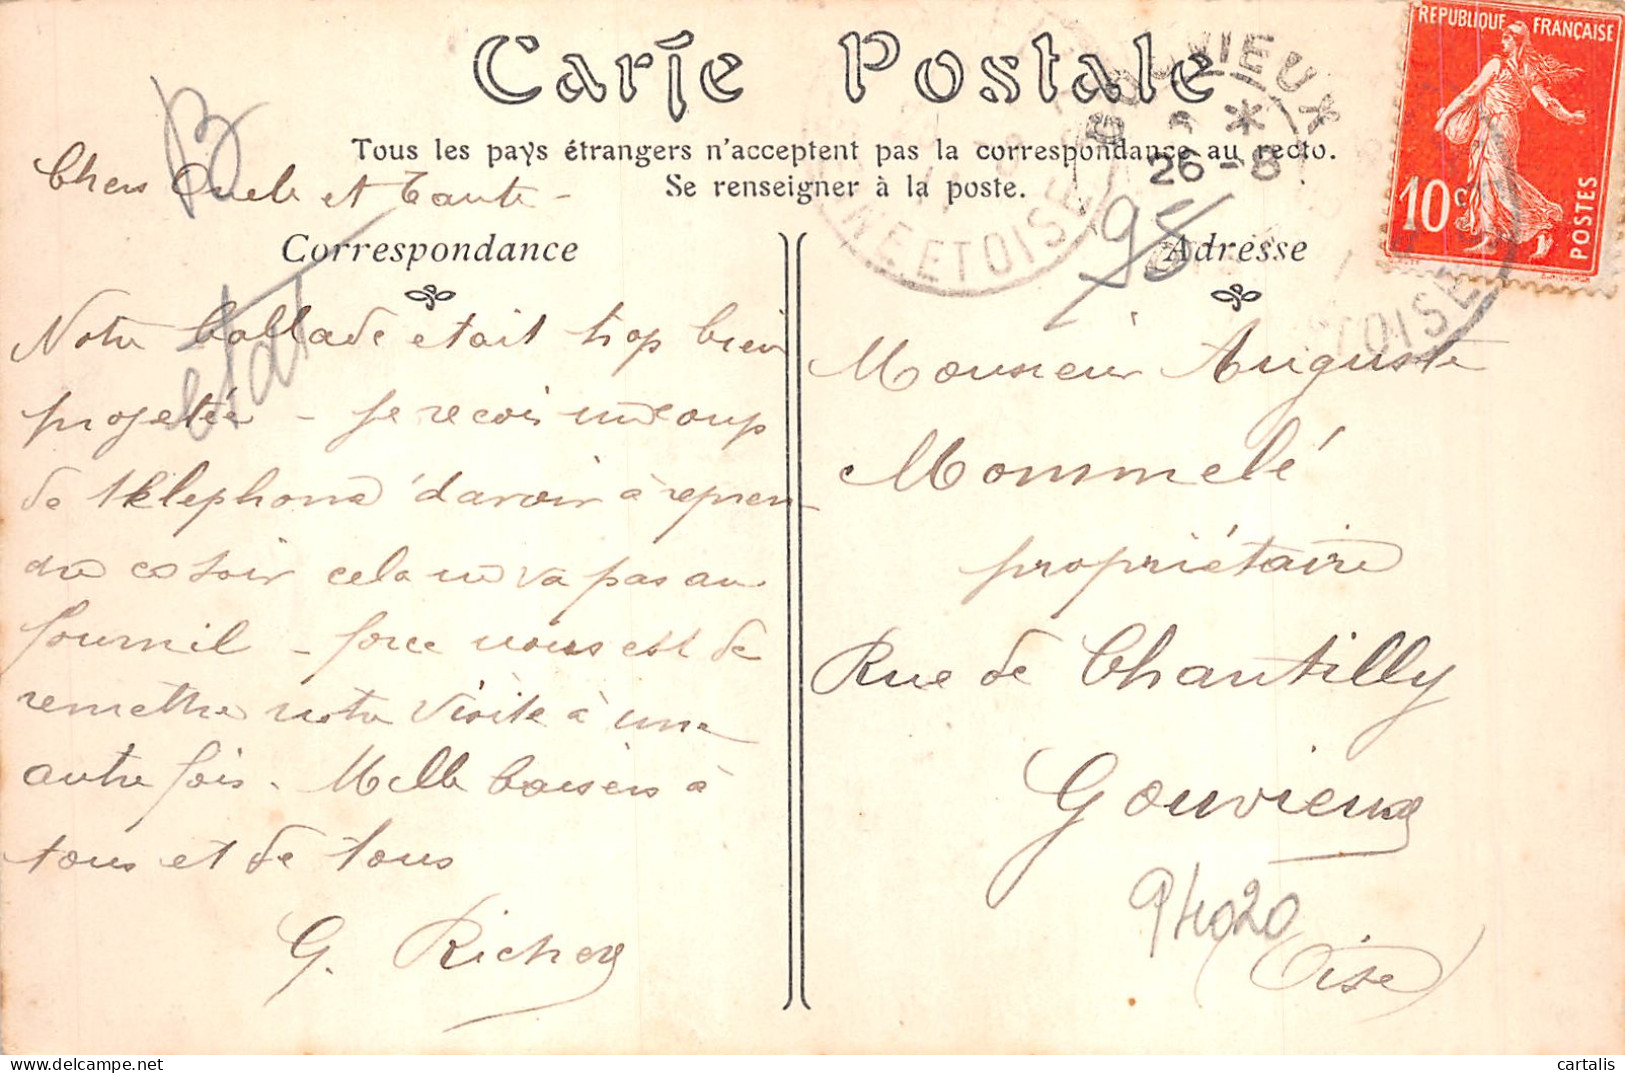 Carte Postale
Tous les pays étrangers n'acceptent pas la correspondance au recto.
Se renseigner à la poste.
RÉPUBLIQUE FRANÇAISE
10 c
POSTES
GOUVIEUX
26 - 8
NE ET OISE
ET OISE
B
95
Chers Oncle et Tante -
Correspondance
Notre ballade était trop bien
projetée - je reçois un coup
de téléphone d'avoir à repren-
dre ce soir cela ne va pas au
fournil - force nous est de
remettre notre visite à une
autre fois. Mille baisers à
tous et de tous
G. Richer
état
Adresse
Monsieur Auguste
Mommelé
propriétaire
Rue de Chantilly
Gouvieux
94020
(Oise)
cartalis